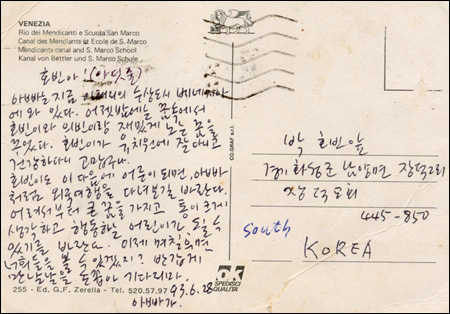 VENEZIA
Rio dei Mendicanti e Scuola San Marco
Canal des Mendiants et Ecole de S. Marco
Mendicants canal and S. Marco School
Kanal von Bettler und S. Marco Schule
호빈아!
아빠는 지금 이태리의 수상도시 베네치아
에 와 있다. 어젯밤에는 꿈속에서
호빈이와 의빈이랑 재밌게 노는 꿈을
꾸었다. 호빈이가 유치원에 잘 다니고
건강하다니 고맙구나.
호빈이도 이 다음에 어른이 되면, 아빠
처럼 외국여행을 다녀보길 바란다.
어려서부터 큰 꿈을 가지고 통이 크게
생각하고 행동하는 어린이가 될 수
있기를 바란다. 이제 며칠있으면
너희들을 볼 수 있겠지? 반갑게
만날 날을 손꼽아 기다리마.
93. 6. 28
아빠가.
255 - Ed. G.F. Zerella - Tel. 520.57.97
CO.GRAF s.r.l.
ak
SPEDISCI
QUALITA'
박 호빈 앞
경기 화성군 남양면 장덕2리
장덕교회
445-850
South
KOREA